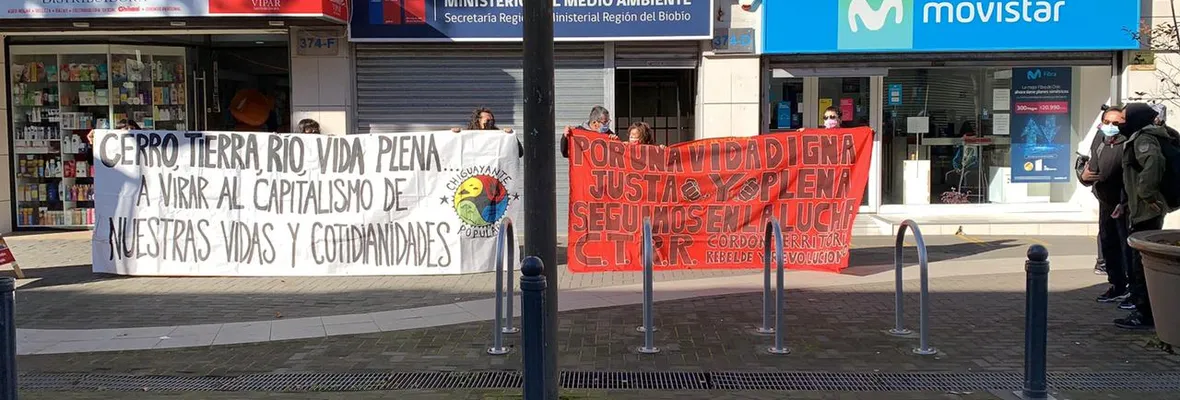 VIPAR
374-F
MINISTERIO DEL MEDIO AMBIENTE
Secretaría Regional Ministerial Región del Biobío
374-D
movistar
CERRO, TIERRA, RÍO, VIDA PLENA...
A VIRAR AL CAPITALISMO DE
NUESTRAS VIDAS Y COTIDIANIDADES
CHIGUAYANTE
POR UNA VIDA DIGNA
JUSTA Y PLENA
SEGUIMOS EN LA LUCHA
C.T.R.R. CORDON TERRITORI
REBELDE Y REVOLUCION
Fibra
300 megas
$20.990